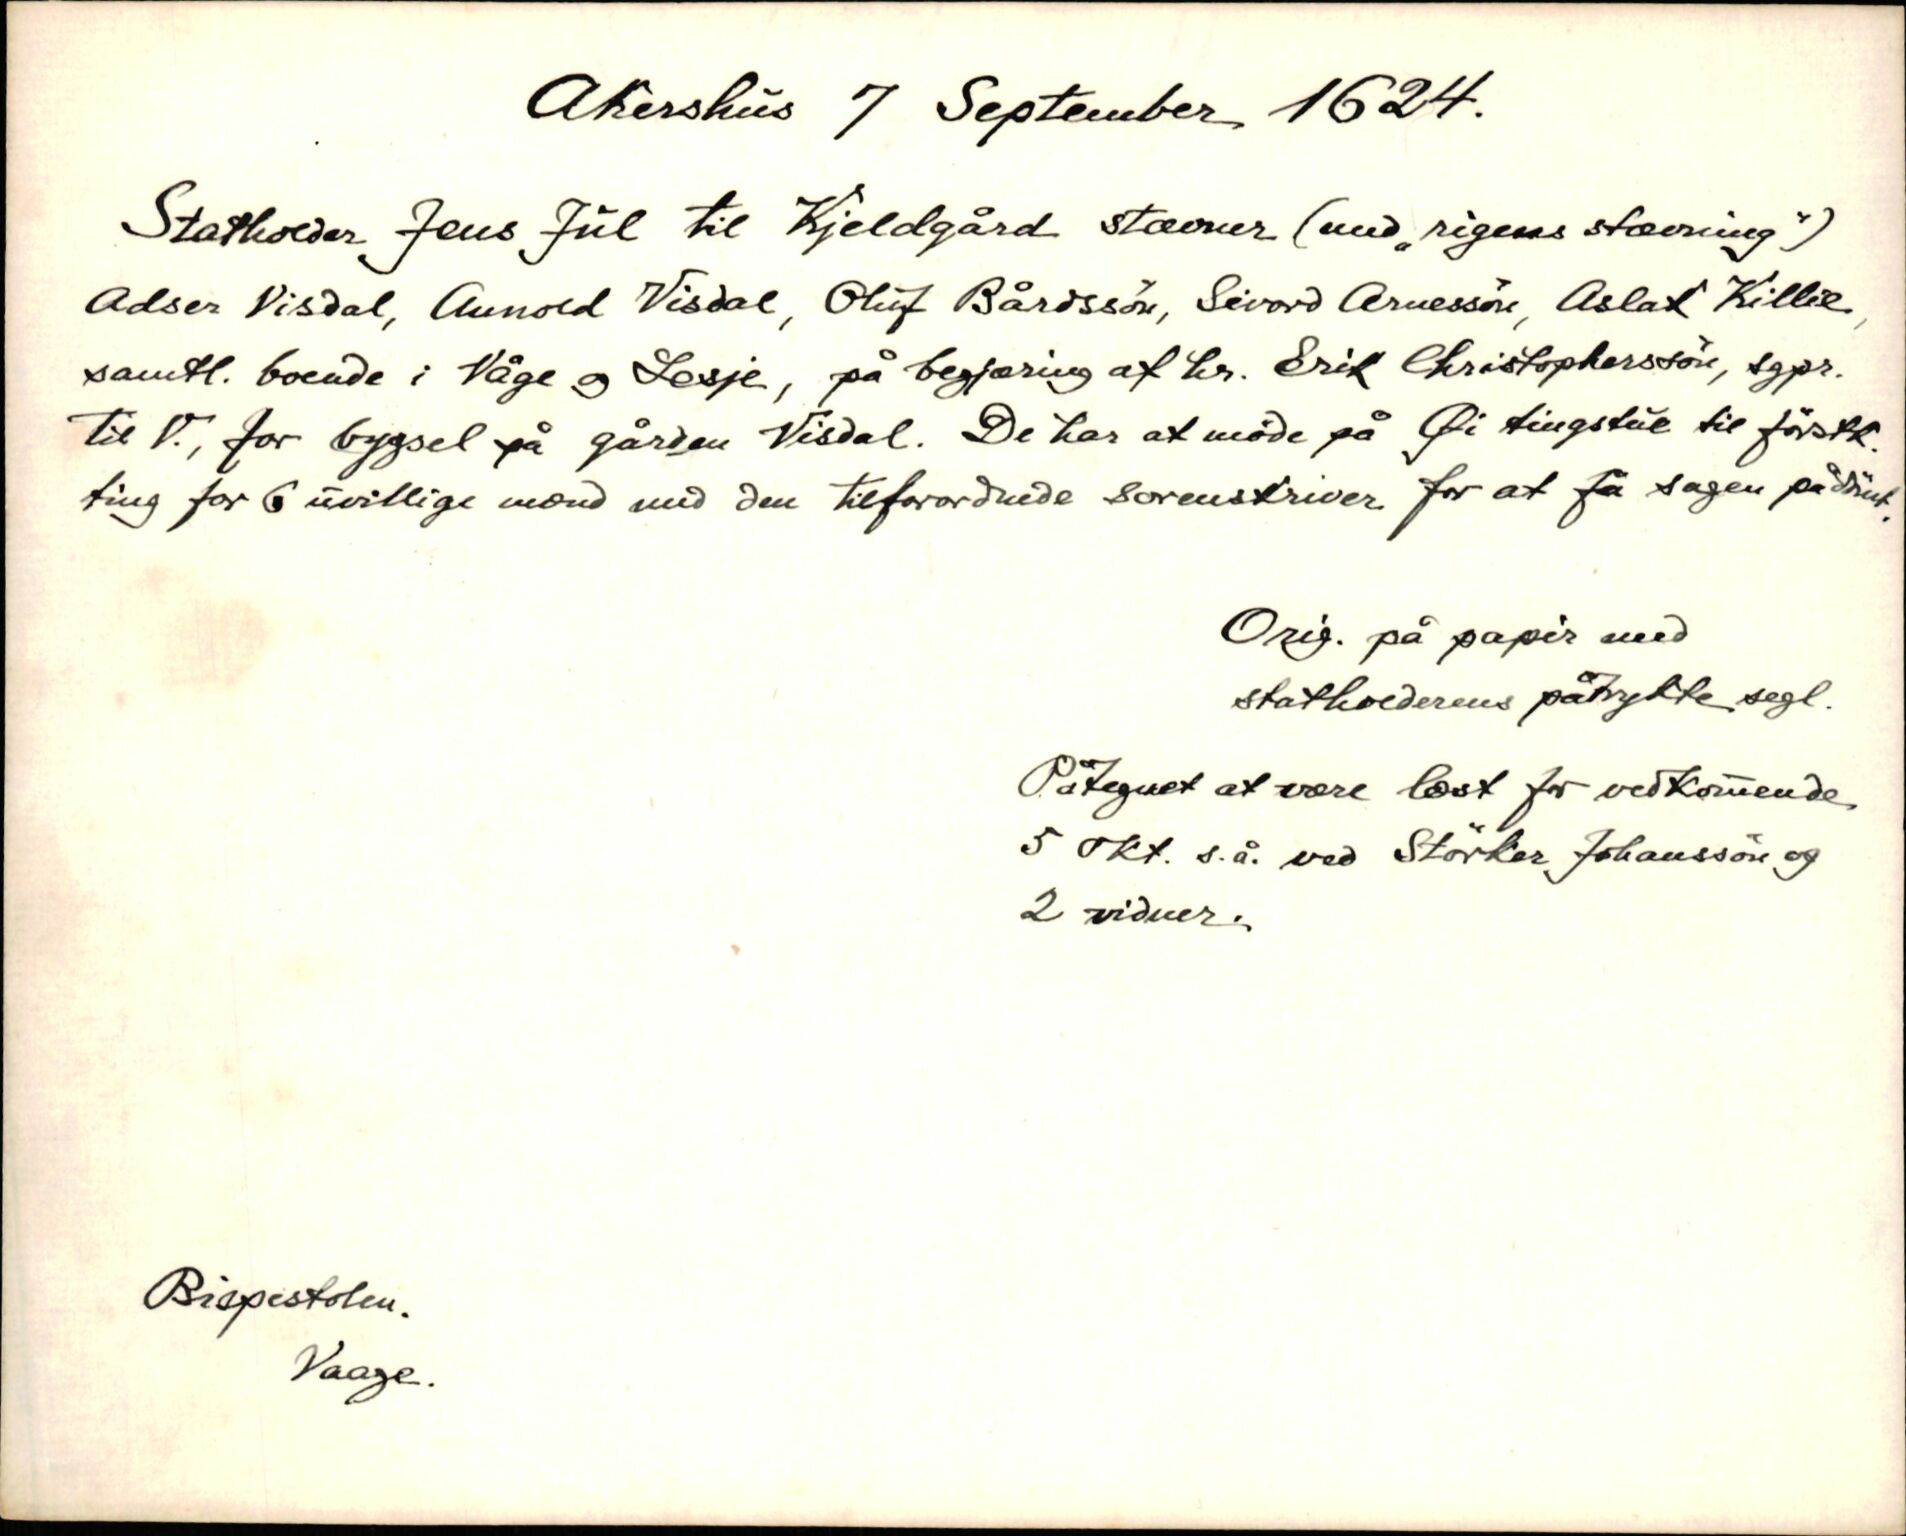 Akershus 7 September 1624.
Statholder Jens Jul til Kjeldgård stævner (med „rigens stævning")
Adser Visdal, Aunold Visdal, Oluf Bårdssön, Sivord Arnessön, Aslak Killie,
samtl. boende i Våge og Lesje, på begjæring af hr. Erik Christopherssön, sgpr.
til V., for bygsel på gården Visdal. De har at möde på Øi tingstue til förstk.
ting for 6 uvillige mænd med den tilforordnede sorenskriver for at få sagen pådömt.
Orig. på papir med
statholderens påtrykte segl.
Påtegnet at være læst for vedkom̅ende
5 okt. s. å. ved Störker Johanssön og
2 vidner.
Bispestolen.
Vaage.